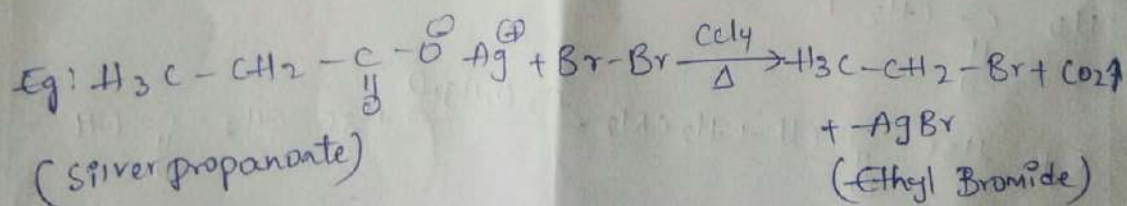 Eg: H3C - CH2 - C - O⊖ Ag⊕ + Br-Br CCl4 Δ → H3C-CH2-Br + CO2↑
O
+ AgBr
(Silver propanoate) (Ethyl Bromide)